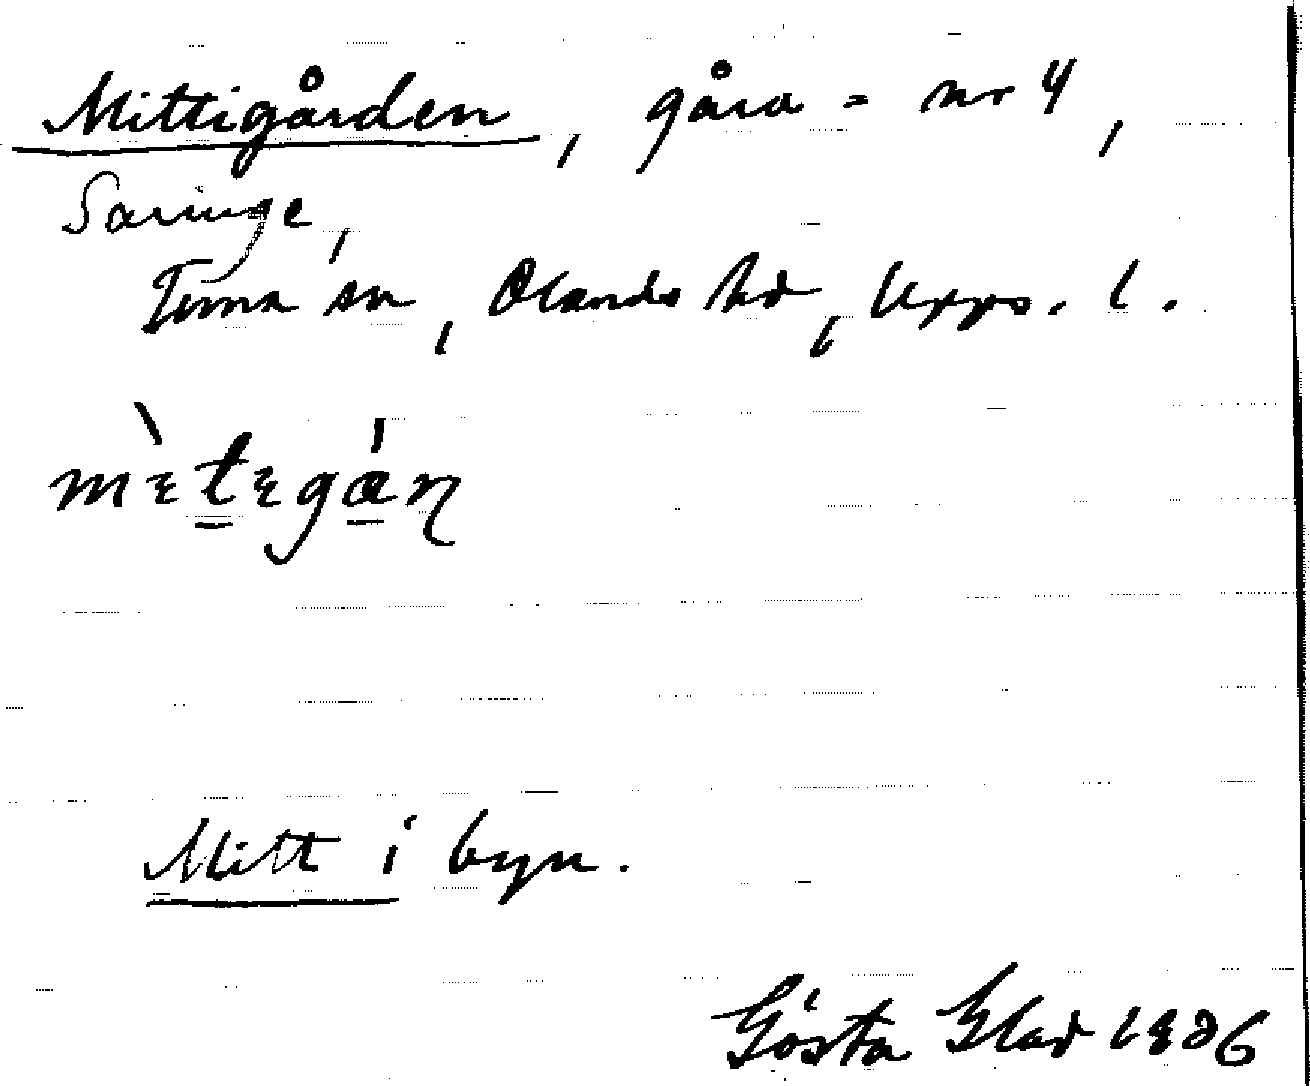 Mittigården, gård = nr 4,
Saringe,
Tuna sn, Olands hd, Upps. l.
mìtegán
Mitt i byn.
Gösta Blad 1936